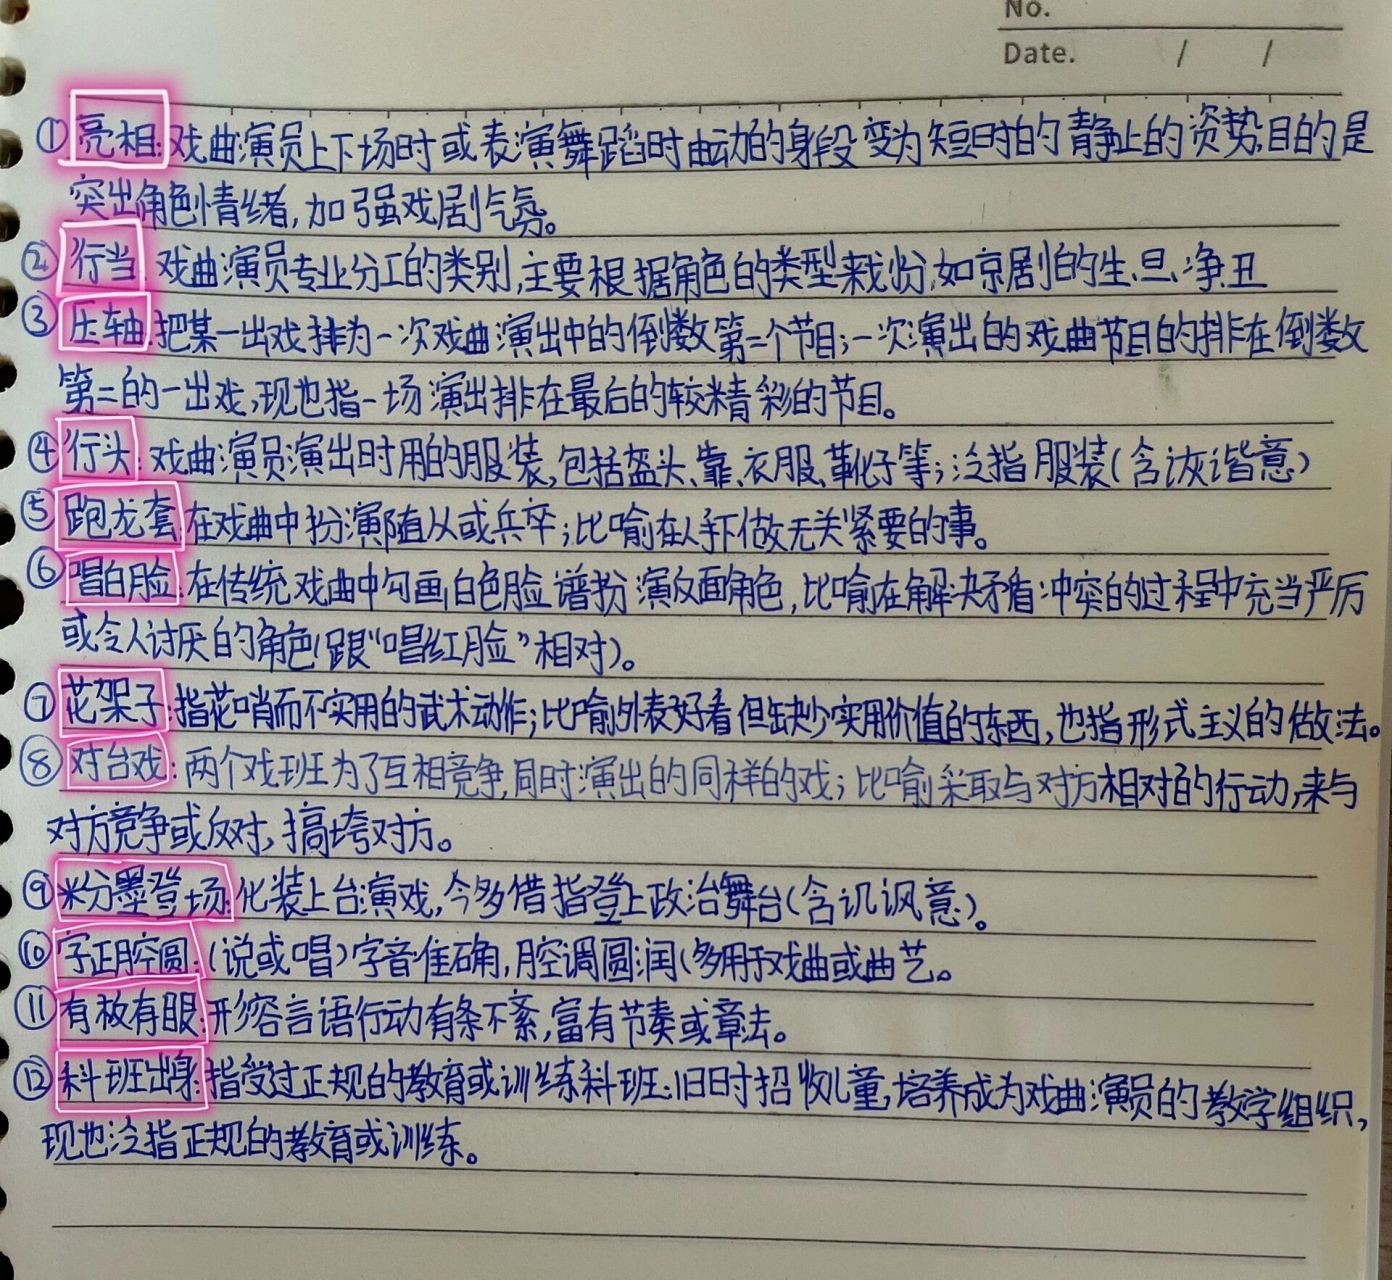 No.
Date. / /
①亮相:戏曲演员上下场时或表演舞蹈时由动的身段变为短时的静止的姿势,目的是
突出角色情绪,加强戏剧气氛。
②行当:戏曲演员专业分工的类别,主要根据角色的类型来划分,如京剧的生、旦、净、丑
③压轴:把某一出戏排为一次戏曲演出中的倒数第二个节目;一次演出的戏曲节目的排在倒数
第二的一出戏,现也指一场演出排在最后的较精彩的节目。
④行头:戏曲演员演出时用的服装,包括盔头、靠、衣服、靴子等;泛指服装(含诙谐意)
⑤跑龙套:在戏曲中扮演随从或兵卒;比喻在人手下做无关紧要的事。
⑥唱白脸:在传统戏曲中勾画白色脸谱扮演反面角色,比喻在解决矛盾冲突的过程中充当严厉
或令人讨厌的角色(跟“唱红脸”相对)。
⑦花架子:指花哨而不实用的武术动作;比喻外表好看但缺少实用价值的东西,也指形式主义的做法。
⑧对台戏:两个戏班为了互相竞争,同时演出的同样的戏;比喻采取与对方相对的行动,来与
对方竞争或反对,搞垮对方。
⑨粉墨登场:化装上台演戏,今多借指登上政治舞台(含讥讽意)。
⑩字正腔圆:(说或唱)字音准确,腔调圆润(多用于戏曲或曲艺。
⑪有板有眼:形容言语行动有条不紊,富有节奏或章法。
⑫科班出身:指受过正规的教育或训练科班:旧时招收儿童,培养成为戏曲演员的教学组织,
现也泛指正规的教育或训练。